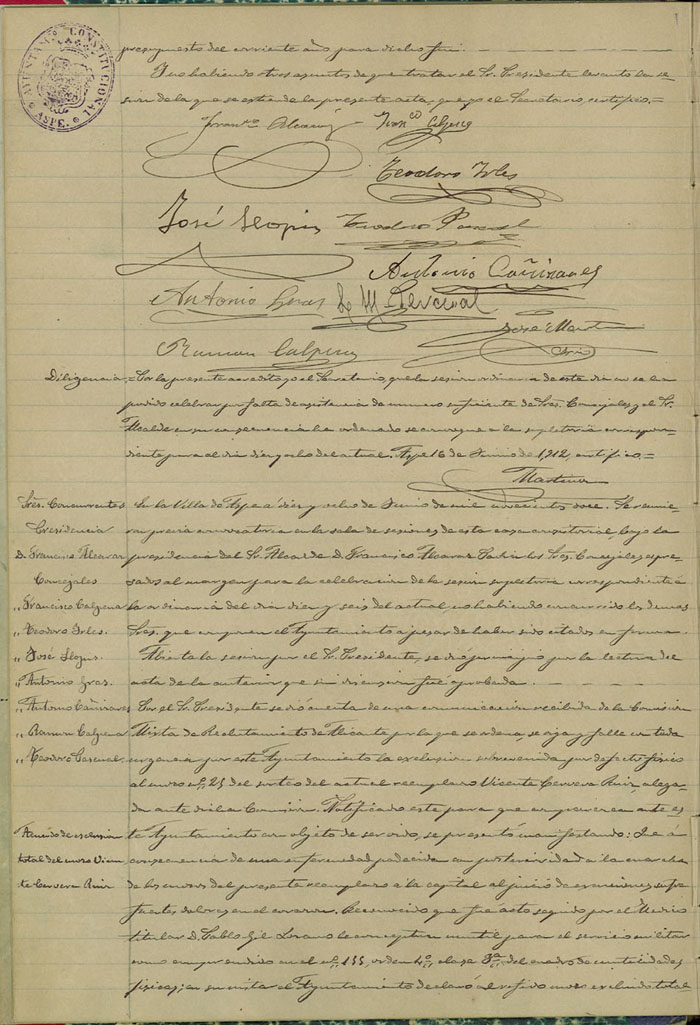 AYUNTAM.º CONSTITUCIONAL ASPE.
presupuesto del corriente año para dichos fin.
Y no habiendo tros asuntos de que tratar el Sr. Presidente levantó la se-
sion de la que se estiende la presente acta, que yo el Secretario, certifico.=
Franc.º Alcaraz Fran.co Calpena
Teodoro Yrles
José Llopis Teodoro Pascual
Antonio Cañizares
Antonio Gras L. M. Cerveral
José Martin
Ramon Calpena
Diligencia.= Por la presente acredito yo el Secretario, que la sesion ordinaria de este dia no se ha
podido celebrar por falta de asistencia de numero suficiente de Sres. Concejales y el Sr.
Alcalde en su consecuencia ha ordenado se convoque a la supletoria correspon-
diente para el dia diez y ocho del actual. Aspe 16 de Junio de 1,912, certifico.=
Martinez
Sres. Concurrentes
Presidencia
D. Francisco Alcaraz
Concejales
" Francisco Calpena
" Teodoro Yrles.
" José Llopis.
" Antonio Gras.
" Antonio Cañizares
" Ramon Calpena
" Teodoro Pascual
En la Villa de Aspe a diez y ocho de Junio de mil novecientos doce. Se reunie-
ron previa convocatoria en la sala de sesiones de esta casa consistorial, bajo la
presidencia del Sr. Alcalde D. Francisco Alcaraz los Sres. Concejales espre-
sados al margen para la celebracion de la sesion supletoria correspondiente á
la ordinaria del dia diez y seis del actual no habiendo concurrido los demas
Sres. que componen el Ayuntamiento a pesar de haber sido citados en forma.
Abierta la sesion por el Sr. Presidente, se dio principio por la lectura del
acta de la anterior que sin discusion fué aprobada.
Por el Sr. Presidente se dió cuenta de una comunicacion recibida de la Comision
Mixta de Reclutamiento de Alicante por la que se ordena, se oiga y falle con toda
urgencia por este Ayuntamiento la exclusion sobrevenida por defecto fisico
al mozo nº. 25 del sorteo del actual reemplazo Vicente Cervera Ruiz, alega-
da ante dicha Comision. Notificado este para que compareciera ante es-
Acuerdo de exclusion
total del mozo Vicen-
te Cervera Ruiz
te Ayuntamiento con objeto de ser oido, se presentó manifestando: Que á
consecuencia de una enfermedad padecida con posterioridad a la marcha
de los mozos del presente reemplazo á la capital al juicio de exenciones sufre
fuertes dolores en el corazon. Reconocido que fué acto seguido por el Medico
titular D. Pablo Gil Lozano le conceptua inutil para el servicio militar
como comprendido en el nº. 155, orden 4º. clase 3ª. del cuadro de inutilidades
fisicas; en su vista el Ayuntamiento declaró al referido mozo excluido total